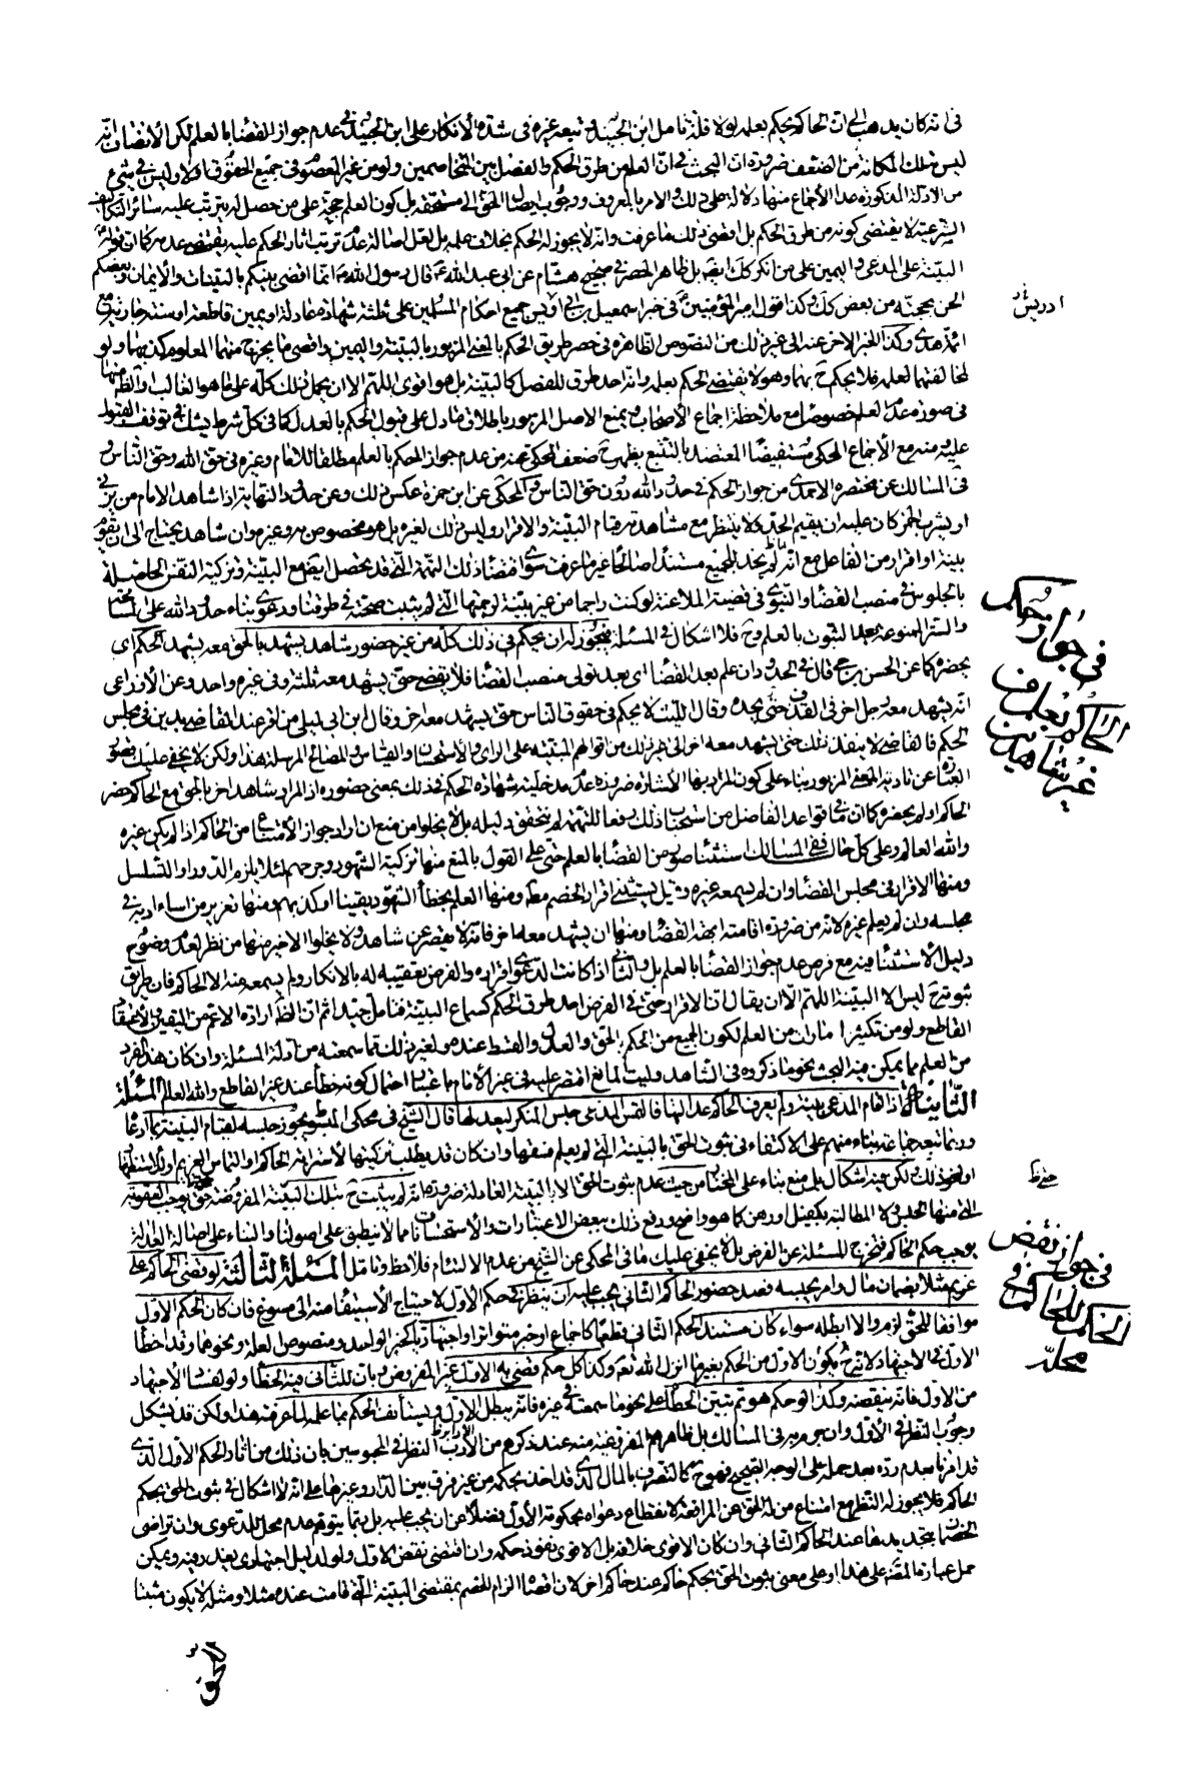 في انه كان يذهب الى ان الحاكم يحكم بعلمه لولا قلة تأمل ابن الجنيد وتبعه غيره في شدة الانكار على ابن الجنيد في عدم جواز القضاء بالعلم لكن الانصاف انه
ليس بتلك المكانة من الضعف ضرورة ان البحث في ان العلم من طرق الحكم والفصل بين المتخاصمين ولو من غير المعصوم في جميع الحقوق اولا وليس في شيء
من الادلة المذكورة عدا الاجماع منها دلالة على ذلك والامر بالمعروف ووجوب ايصال الحق الى مستحقه بل كون العلم حجة على من حصل له يترتب عليه سائر التكاليف
الشرعية لا يقتضي كونه من طرق الحكم بل اقصى ذلك ما عرفت وانه لا يجوز له الحكم بخلاف علمه بل لعل اصالة عدم ترتب آثار الحكم عليه يقتضي عدمه كما ان قوله
البينة على المدعي واليمين على من انكر كك ايضا بل ظاهر الحصر في صحيح هشام عن ابي عبد الله قال رسول الله انما اقضي بينكم بالبينات والايمان وبعضكم
الحن بحجته من بعض كك وكذا قول امير المؤمنين في خبر اسمعيل بن ابي اويس جميع احكام المسلمين على ثلثة شهادة عادلة او يمين قاطعة او سنة جارية مع
ائمة هدى وكذا الخبر الاخر عنه الى غير ذلك من النصوص الظاهرة في حصر طريق الحكم بالمعنى المزبور بالبينة واليمين واقصى ما يخرج منها المعلوم كذبهما ولو
لمخالفتهما لعلمه فلا يحكم ح بهما وهو لا يقتضي الحكم بعلمه وانه احد طرق الفصل كالبينة بل هو اقوى اللهم الا ان يحمل ذلك كله على ما هو الغالب او الظ منها
في صورة عدم العلم خصوصا مع ملاحظة اجماع الاصحاب ويمنع الاصل المزبور باطلاق ما دل على قبول الحكم بالعدل كما في كل شرط يشك في توقف القبول
عليه ومنه مع الاجماع المحكي مستفيضا المعتضد بالتتبع يظهر لك ضعف المحكي عنه من عدم جواز الحكم بالعلم مطلقا للامام وغيره في حق الله وحق الناس و
في المسالك عن مختصره الاحمدي من جواز الحكم في حدود الله دون حق الناس والمحكي عن ابن حمزة عكس ذلك وعن حدود النهاية اذا شاهد الامام من يزني
او يشرب الخمر كان عليه ان يقيم الحد ولا ينتظر مع مشاهدته قيام البينة والاقرار وليس ذلك لغيره بل هو مخصوص به وغيره وان شاهد يحتاج الى ان يقوم
بينة او اقرار من الفاعل مع انه لم نجد للجميع مستندا صالحا غير ما عرفت سوى اقتضاء ذلك التهمة التي قد يحصل ايضا مع البينة وتزكية النفس الحاصلة
بالجلوس في منصب القضاء والنبوي في قضية الملاعنة لو كنت راجما من غير بينة لرجمتها التي لم يثبت صحته في طرقنا ودعوى بناء حدود الله على المسامحة
والستر الممنوعة بعد الثبوت بالعلم وح فلا اشكال في المسئلة فيجوز له ان يحكم في ذلك كله من غير حضور شاهد يشهد بالحق معه يشهد الحكم اي
بحضره كما عن الحسن بن حي قال في الحدود ان علم بعد القضاء اي بعد تولي منصب القضاء فلا يقضي حتى يشهد معه ثلثة وفي غيره واحد وعن الاوزاعي
انه يشهد معه رجل اخر في القذف حتى يحده وقال الليث لا يحكم في حقوق الناس حتى يشهد معه اخر وقال ابن ابي ليلى من اقر عند القاضي بدين في مجلس
الحكم فالقاضي لا ينفذ ذلك حتى يشهد معه اخر الى غير ذلك من اقوالهم المبتنية على الرأي والاستحسان والقياس والمصالح المرسلة هذا ولكن لا يخفى عليك قصور
العبارة عن تأدية المعنى المزبور بناء على كون المراد بها الاشارة ضرورة عدم مدخلية شهادة الحكم في ذلك بمعنى حضوره اذ المراد شاهد اخر بالحق مع الحاكم حضر
الحاكم اولم يحضره كما ان في قواعد الفاضل من استحباب ذلك دفعا للتهمة لم نتحقق دليله بل لا يخلوا من منع ان اراد جواز الامتناع من الحاكم اذا لم يكن غيره
والله العالم وعلى كل حال ففي المسالك استثناء صور من القضاء بالعلم حتى على القول بالمنع منها تزكية الشهود وجرحهم لئلا يلزم الدور او التسلسل
ومنها الاقرار في مجلس القضاء وان لم يسمعه غيره وقيل يستثنى اقرار الخصم مطلقا ومنها العلم بخطأ الشهود يقينا او كذبهم ومنها تعزير من اساء ادبه في
مجلسه وان لم يعلم غيره لانه من ضرورة اقامة ابهة القضاء ومنها ان يشهد معه اخر فانه لا يقصر عن شاهد ولا يخلوا الاخير منها من نظر لعدم وضوح
دليل الاستثناء فيه مع فرض عدم جواز القضاء بالعلم بل والثاني اذا كانت الدعوى اقراره والفرض تعقيبه له بالانكار ولم يسمعه منه الا الحاكم فان طريق
ثبوته ح ليس الا البينة اللهم الا ان يقال ان الاقرار حتى في الفرض احد طرق الحكم كسماع البينة فتأمل جيدا ثم ان الظ ارادة الاعم من اليقين والاعتقاد
القاطع ولو من تكثير امارات من العلم لكون الجميع من الحكم بالحق والعدل والقسط عنده ولغير ذلك مما سمعته من ادلة المسئلة وان كان هذا الفرد
من العلم مما يمكن فيه البحث بنحو ما ذكروه في الشاهد وليت المانع اقتصر عليه في غير الامام باعتبار احتمال كونه خطأ عند غير القاطع والله العالم المسئلة
الثانية اذا اقام المدعي بينة ولم يعرف الحاكم عدالتها فالتمس المدعي حبس المنكر ليعدلها قال الشيخ في محكي المبسوط يجوز حبسه لقيام البينة بما ادعاه
وربما تبعه جماعة بناء منهم على الاكتفاء في ثبوت الحق بالبينة التي لم يعلم فسقها وان كان قد يطلب تزكيتها لاسترابة الحاكم او التماس الغريم او للاستظهار
او نحو ذلك لكن فيه اشكال بل منع بناء على المختار من حيث عدم ثبوت الحق الا بالبينة العادلة ضرورة انه لم يثبت ح بتلك البينة المفروضة حق يوجب العقوبة
التي منها الحبس ولا المطالبة بكفيل او رهن كما هو واضح ودفع ذلك ببعض الاعتبارات والاستحسانات مما لا ينطبق على اصولنا والبناء على اصالة العدالة
يوجب حكم الحاكم فتخرج المسئلة عن الفرض بل لا يخفى عليك ما في المحكي عن الشيخ من عدم الالتئام فلاحظ وتأمل المسئلة الثالثة لو قضى الحاكم على
غريم مثلا بضمان مال وامر بحبسه فعند حضور الحاكم الثاني يجب عليه ان ينظر في حكم الاول لاحتياج الاستيفاء منه الى مسوغ فان كان الحكم الاول
موافقا للحق لزم والا ابطله سواء كان مستند الحكم الثاني قطعيا كاجماع او خبر متواتر او اجتهاديا كخبر الواحد ومنصوص العلة ونحوهما وقد اخطأ
الاول في الاجتهاد لانه ح يكون الاول من الحكم بغير ما انزل الله نعم وكذا كل حكم قضى به الاول غير المفروض وبان للثاني فيه الخطأ ولو لفساد الاجتهاد
من الاول فانه ينقضه وكذا لو حكم هو ثم تبين الخطأ على نحو ما سمعته في غيره فانه يبطل الاول ويستأنف الحكم بما علمه لما عرفته هذا ولكن قد يشكل
وجوب النظر في الاول وان جزم به في المسالك بل ظاهرهم المفروغية منه عند ذكرهم من الآداب النظر في المحبوسين بان ذلك من اثار الحكم الاول الذي
قد اقرنا بعدم رده بعد حمله على الوجه الصحيح فهو ح كالتصرف بالمال الذي قد اخذ بحكمه من غير فرق بين الدار وغيرها على انه لا اشكال في ثبوت الحق بحكم
الحاكم فلا يجوز له النظر مع امتناع من له الحق عن المرافعة لانقطاع دعواه بحكومة الاول فضلا عن ان يجب عليه بل ربما يتوهم عدم محل للدعوى وان تراضى
الخصمان بتجديدها عند الحاكم الثاني وان كان الاقوى خلافه بل الاقوى نفوذ حكمه وان اقتضى نقض الاول ولو لدليل اجتهادي يعيد رفيه ويمكن
حمل عبارة المصنف على هذا او على معنى ثبوت الحق بحكم حاكم عند حاكم اخر لان اقتضاء الزام الخصم بمقتضى البينة التي قامت عنده مثلا ومثله لا يكون مثبتا
ادريس
في جواز حكم
الحاكم بعلمه من
غير شاهدين
في جواز نقض
الحكم للحاكم في
محله
للحق